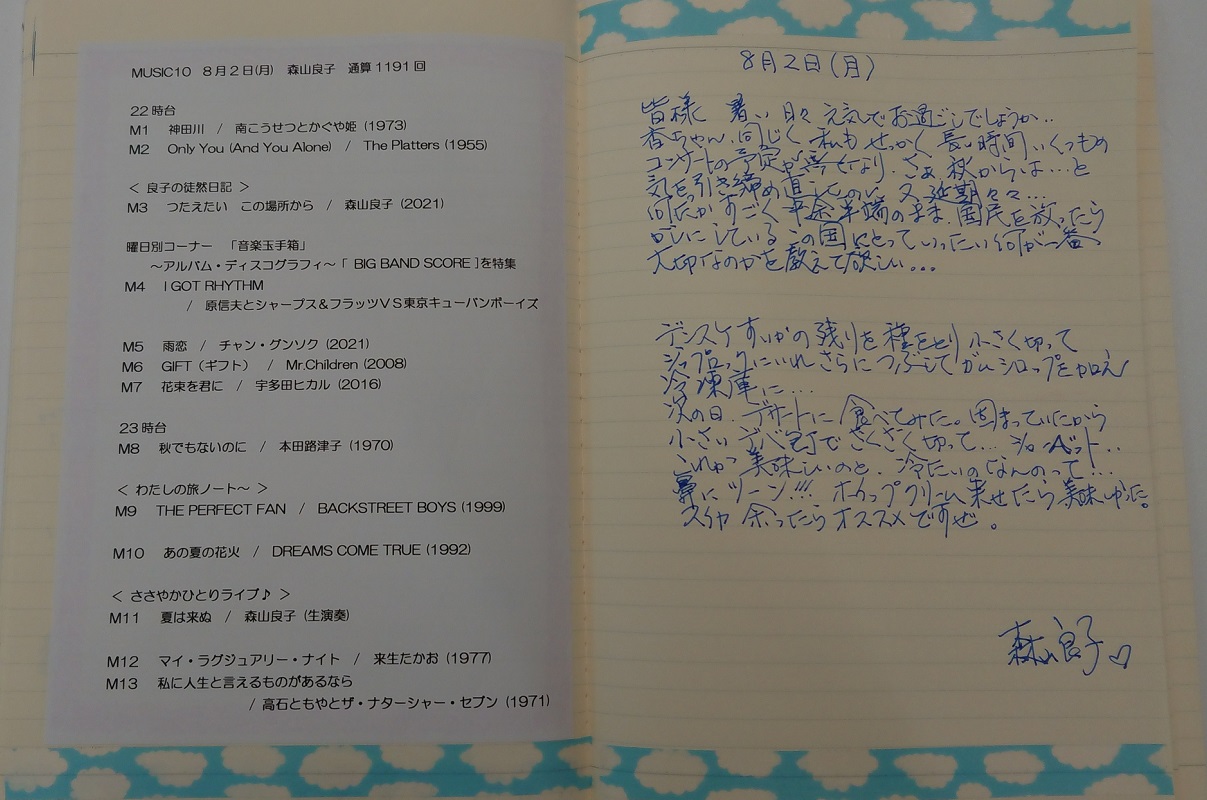 MUSIC10 8月2日(月) 森山良子 通算1191回
22時台
M1 神田川 / 南こうせつとかぐや姫 (1973)
M2 Only You (And You Alone) / The Platters (1955)
< 良子の徒然日記 >
M3 つたえたい この場所から / 森山良子 (2021)
曜日別コーナー 「音楽玉手箱」
～アルバム・ディスコグラフィ～「 BIG BAND SCORE 」を特集
M4 I GOT RHYTHM
/ 原信夫とシャープス&フラッツVS東京キューバンボーイズ
M5 雨恋 / チャン・グンソク (2021)
M6 GIFT (ギフト) / Mr.Children (2008)
M7 花束を君に / 宇多田ヒカル (2016)
23時台
M8 秋でもないのに / 本田路津子 (1970)
< わたしの旅ノート～ >
M9 THE PERFECT FAN / BACKSTREET BOYS (1999)
M10 あの夏の花火 / DREAMS COME TRUE (1992)
< ささやかひとりライブ♪ >
M11 夏は来ぬ / 森山良子 (生演奏)
M12 マイ・ラグジュアリー・ナイト / 来生たかお (1977)
M13 私に人生と言えるものがあるなら
/ 高石ともやとザ・ナターシャー・セブン (1971)
8月2日(月)
皆様 暑い日々 元気でお過ごしでしょうか..
香ちゃん同じく 私も せっかく 長い時間 いくつもの
コンサートの予定が なり. さぁ 秋からは...と
気を引き締め直したのに 又 延期々々...
何だかすごく 中途半端のまま. 国民を放ったら
かしにしている この国にとっていったい何が一番
大切なのかを教えて欲しい...
デンスケすいかの残りを種をとり 小さく切って
ジップロックにいれ さらにつぶして ガムシロップを加え
冷凍庫に...
次の日. デザートに 食べてみた。固まっていたから
小さい デバ包丁で さくさく切って... シャーベット..
美味しいのと. 冷たいのなんのって!..
鼻にツーン!!! ホイップクリーム 乗せたら美味しかった。
スイカ 余ったら オススメですぜ。
森山良子♡